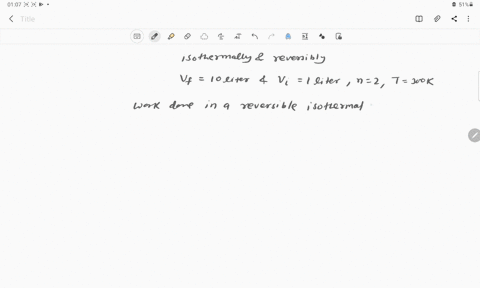 01:07
51%
Title
isothermally & reversibly
Vf = 10 liter & Vi = 1 liter, n=2, T=300K
work done in a reversible isothermal